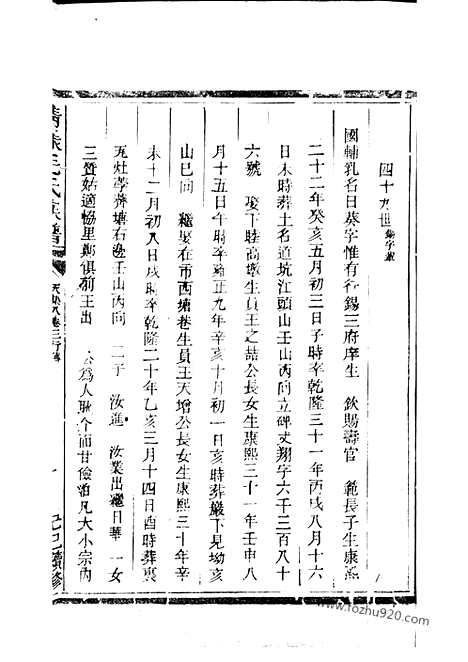 四十九世 葵字輩
國輔乳名日葵字惟有行錫三府庠生 欽賜壽官 範長子生康熙
二十二年癸亥五月初三日子時卒乾隆三十一年丙戌八月十六
日未時葬土名道坑江頭山壬山丙向立碑丈翔字六千三百八十
六號 娶下睦高墩生員王之喆公長女生康熙三十一年壬申八
月十五日午時卒雍正九年辛亥十月初一日亥時葬嚴下見坳亥
山巳向 繼娶在市西塘巷生員王天增公長女生康熙三十年辛
未十二月初八日戌時卒乾隆二十年乙亥三月十四日酉時葬裏
五灶莘塘右邊壬山丙向 二子 汝進 汝業出繼日華 一女
三贊姑適協里鄭俱前王出 公為人耿介而甘儉泊凡大小宗內
毛氏族譜
己巳續修
www.fozhu920.com